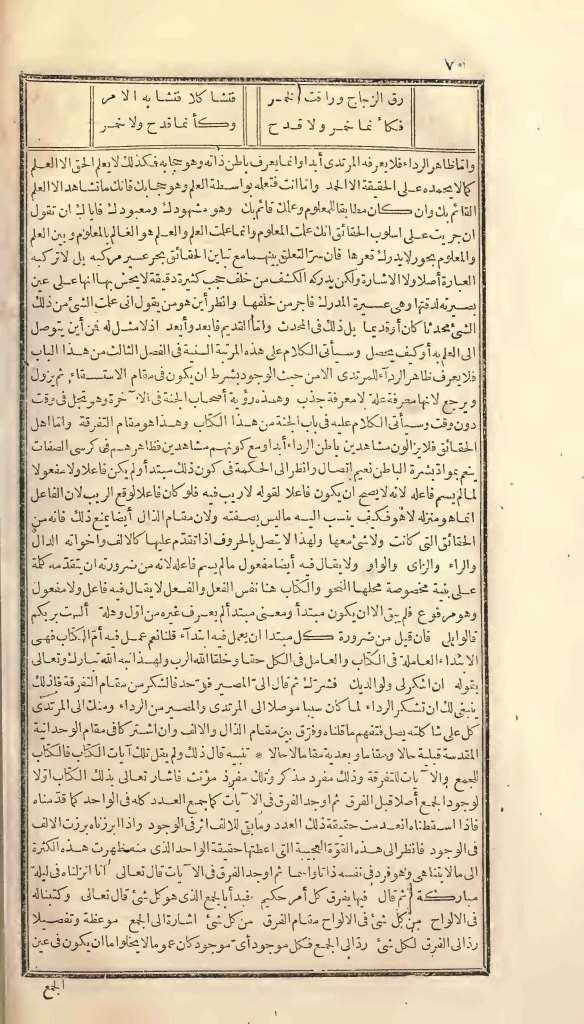 ٧٥
رق الزجاج وراقت الخمر فتشاكلا فتشابه الامر
فكأنما خمر ولا قدح وكأنما قدح ولا خمر
واما ظاهر الرداء فلا يعرفه المرتدى أبدا وانما يعرف باطن ذاته وهو حجابه فكذلك لا يعلم الحق الا العلم
كما لا يحمده على الحقيقة الا الحمد واما انت فتعلمه بواسطة العلم وهو حجابك فانك ما تشاهد الا العلم
القائم بك وان كان مطابقا للمعلوم وعلمك قائم بك وهو مشهودك ومعبودك فاياك ان تقول
ان جريت على اسلوب الحقائق انك علمت المعلوم وانما علمت العلم والعلم هو العالم بالمعلوم وبين العلم
والمعلوم بحور لا يدرك قعرها فان سر التعلق بينهما مع تباين الحقائق بحر عسير مركبه بل لا تركبه
العبارة أصلا ولا الاشارة ولكن يدركه الكشف من خلف حجب كثيرة دقيقة لا يحس بها انها على عين
بصيرته لدقتها وهى عسيرة المدرك فاحر من خلفها وانظر أين هو من يقول انى علمت الشئ من ذلك
الشئ محدثا كان أو قديما بل ذلك فى المحدث واما القديم فابعد وأبعد اذ لا مثل له فمن أين يتوصل
الى العلم به أو كيف يحصل وسيأتى الكلام على هذه المرتبة السنية فى الفصل الثالث من هذا الباب
فلا يعرف ظاهر الرداء المرتدى الا من حيث الوجود بشرط ان يكون فى مقام الاستسقاء ثم يزول
ويرجع لانها معرفة علة لا معرفة جذب وهذه رؤية أصحاب الجنة فى الآخرة وهو تجل فى وقت
دون وقت وسيأتى الكلام عليه فى باب الجنة من هذا الكتاب وهذا هو مقام التفرقة واما اهل
الحقائق فلا يزالون مشاهدين باطن الرداء أبدا ومع كونهم مشاهدين فظاهرهم فى كرسى الصفات
ينعم بمواد بشرة الباطن نعيم اتصال وانظر الى الحكمة فى كون ذلك مبتدأ ولم يكن فاعلا ولا مفعولا
لما لم يسم فاعله لانه لا يصح ان يكون فاعلا لقوله لا ريب فيه فلو كان فاعلا لوقع الريب لان الفاعل
انما هو منزله لا هو فكيف ينسب اليه ما ليس بصفته ولان مقام الذال أيضا يمنع ذلك فانه من
الحقائق التى كانت ولا شئ معها ولهذا لا يتصل بالحروف اذا تقدم عليها كالالف وأخواته الدال
والراء والزاى والواو ولا يقال فيه أيضا مفعول ما لم يسم فاعله لانه من ضرورته ان يتقدمه كلمة
على بنية مخصوصة محلها النحو والكتاب هنا نفس الفعل والفعل لا يقال فيه فاعل ولا مفعول
وهو مرفوع فلم يبق الا ان يكون مبتدأ ومعنى مبتدأ لم يعرف غيره من أول وهلة ألست بربكم
قالوا بلى فان قيل من ضرورة كل مبتدا ان يعمل فيه ابتدآء قلنا نعم عمل فيه أم الكتاب فهى
الابتداء العاملة فى الكتاب والعامل فى الكل حقا وخلقا الله الرب ولهذا نبه الله تبارك وتعالى
بقوله ان اشكر لى ولوالديك فشرك ثم قال الىّ المصير فوحد فالشكر من مقام التفرقة فكذلك
ينبغى لك ان تشكر الرداء لما كان سببا موصلا الى المرتدى والمصير من الرداء ومنك الى المرتدى
كل على شاكلته يصل فتفهم ما قلناه وفرق بين مقام الذال والالف وان اشتركا فى مقام الوحدانية
المقدسة قبلية حالا ومقاما وبعدية مقاما لا حالا * تنبيه قال ذلك ولم يقل تلك آيات الكتاب فالكتاب
للجمع والآيات للتفرقة وذلك مفرد مذكر وتلك مفرد مؤنث فاشار تعالى بذلك الكتاب اولا
لوجود الجمع أصلا قبل الفرق ثم اوجد الفرق فى الآيات كما جمع العدد كله فى الواحد كما قدمناه
فاذا اسقطناه انعدمت حقيقة ذلك العدد وما بقى للالف اثر فى الوجود واذا ابرزناه برزت الالف
فى الوجود فانظر الى هذه القوة العجيبة التى اعطتها حقيقة الواحد الذى منه ظهرت هذه الكثرة
الى ما لا يتناهى وهو فرد فى نفسه ذاتا واسما ثم اوجد الفرق فى الآيات قال تعالى انا انزلناه فى ليلة
مباركة ثم قال فيها يفرق كل أمر حكيم فبدأ بالجمع الذى هو كل شئ قال تعالى وكتبنا له
فى الالواح من كل شئ فى الالواح مقام الفرق من كل شئ اشارة الى الجمع موعظة وتفصيلا
رد الى الفرق لكل شئ رد الى الجمع فكل موجود أى موجود كان عموما لا يخلو اما ان يكون فى عين
الجمع